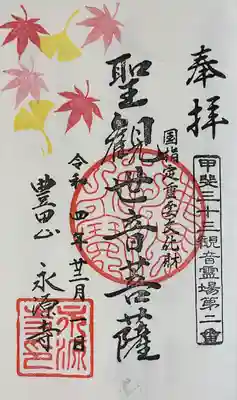 奉拝
甲斐三十三観音霊場第二番
国指定重要文化財
聖觀世音菩薩
令和四年十二月一日
豊冨山 永源寺